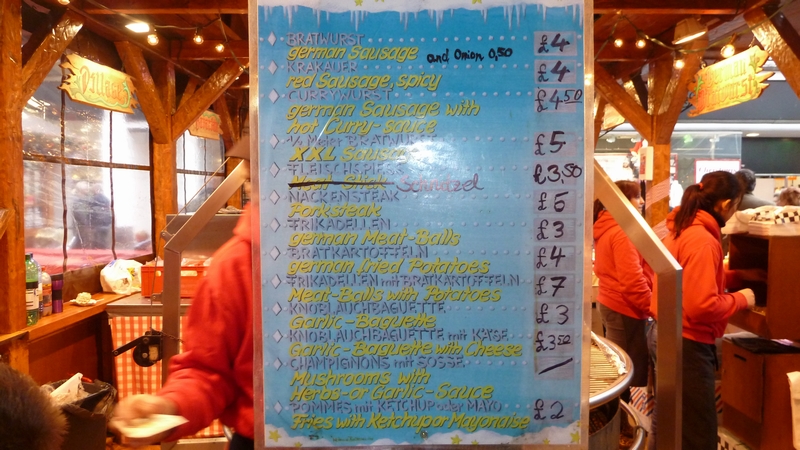 BRATWURST
german Sausage and Onion 0,50 £4
KRAKAUER
red Sausage, spicy £4
CURRYWURST
german Sausage with £4.50
hot Curry-sauce
½ Meter BRATWURST
XXL Sausage £5
FLEISCHSPIESS
Schnitzel £3,50
NACKENSTEAK
Porksteak £6
FRIKADELLEN
german Meat-Balls £3
BRATKARTOFFELN
german fried Potatoes £4
FRIKADELLEN mit BRATKARTOFFELN
Meat-Balls with Potatoes £7
KNOBLAUCHBAGUETTE
Garlic-Baguette £3
KNOBLAUCHBAGUETTE mit KÄSE
Garlic-Baguette with Cheese £3.50
CHAMPIGNONS mit SOSSE
Mushrooms with
Herbs-or Garlic-Sauce
POMMES mit KETCHUP oder MAYO
Fries with Ketchup or Mayonaise £2